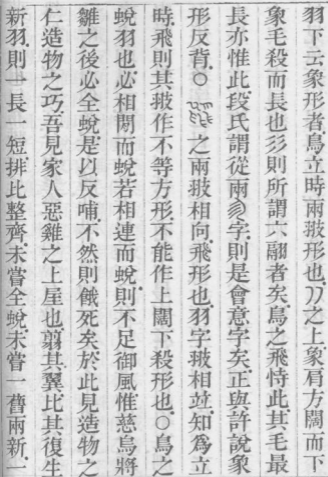 羽下云象形者鳥立時兩翄形也𠘧之上象肩方闊而下
象毛殺而長也彡則所謂六翮者矣鳥之飛恃此其毛最
長亦惟此段氏謂從兩彡字則是會意字矣正與許說象
形反背○之兩翄相向飛形也羽字翄相並知爲立
時飛則其翄作不等方形不能作上闊下殺形也○鳥之
蛻羽也必相閒而蛻若相連而蛻則不足御風惟慈烏將
雛之後必全蛻是以反哺不然則餓死矣於此見造物之
仁造物之巧吾見家人惡雞之上屋也翦其翼比其復生
新羽則一長一短排比整齊未嘗全蛻未嘗一舊兩新一